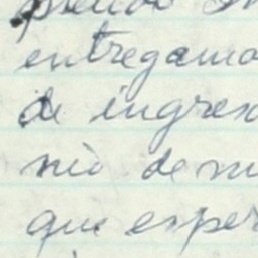 entregamo
de ingreso
nio de mi
que esper